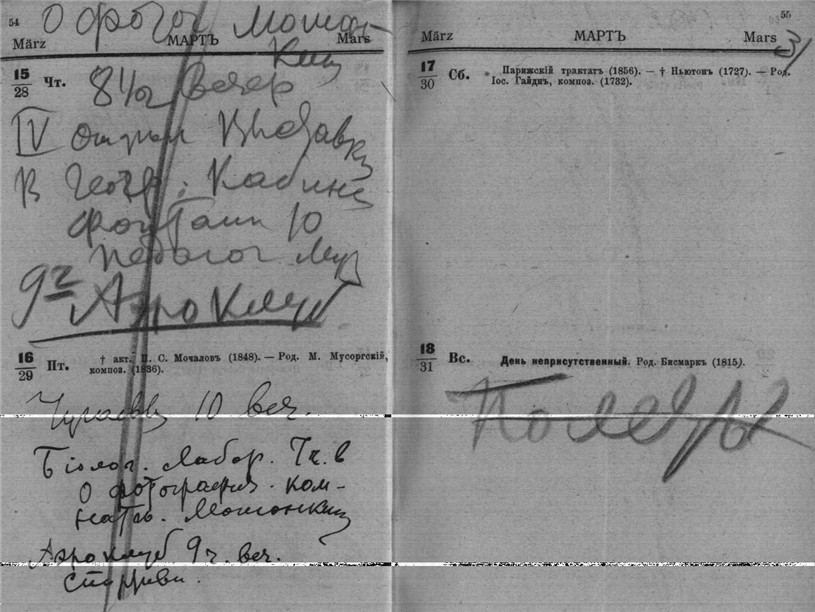 54
О фотог
März МАРТЪ Mars
15
28
Чт.
8 1/2 Вечер
IV
В Геогр. Кабине
Фонтанн 10
педагог Муз
9 Аэро Клуб
16
29
Пт.
† акт. П. С. Мочаловъ (1848). — Род. М. Мусоргскій,
композ. (1836).
10 веч.
Біолог. Лабор. 7 ч. в
О фотографич. ком-
натъ.
Аэроклуб 9 ч. веч.
55
März МАРТЪ Mars
31
17
30
Сб.
Парижскій трактатъ (1856). — † Ньютонъ (1727). — Род.
Іос. Гайднъ, композ. (1732).
18
31
Вс.
День неприсутственный. Род. Бисмаркъ (1815).
Полеты